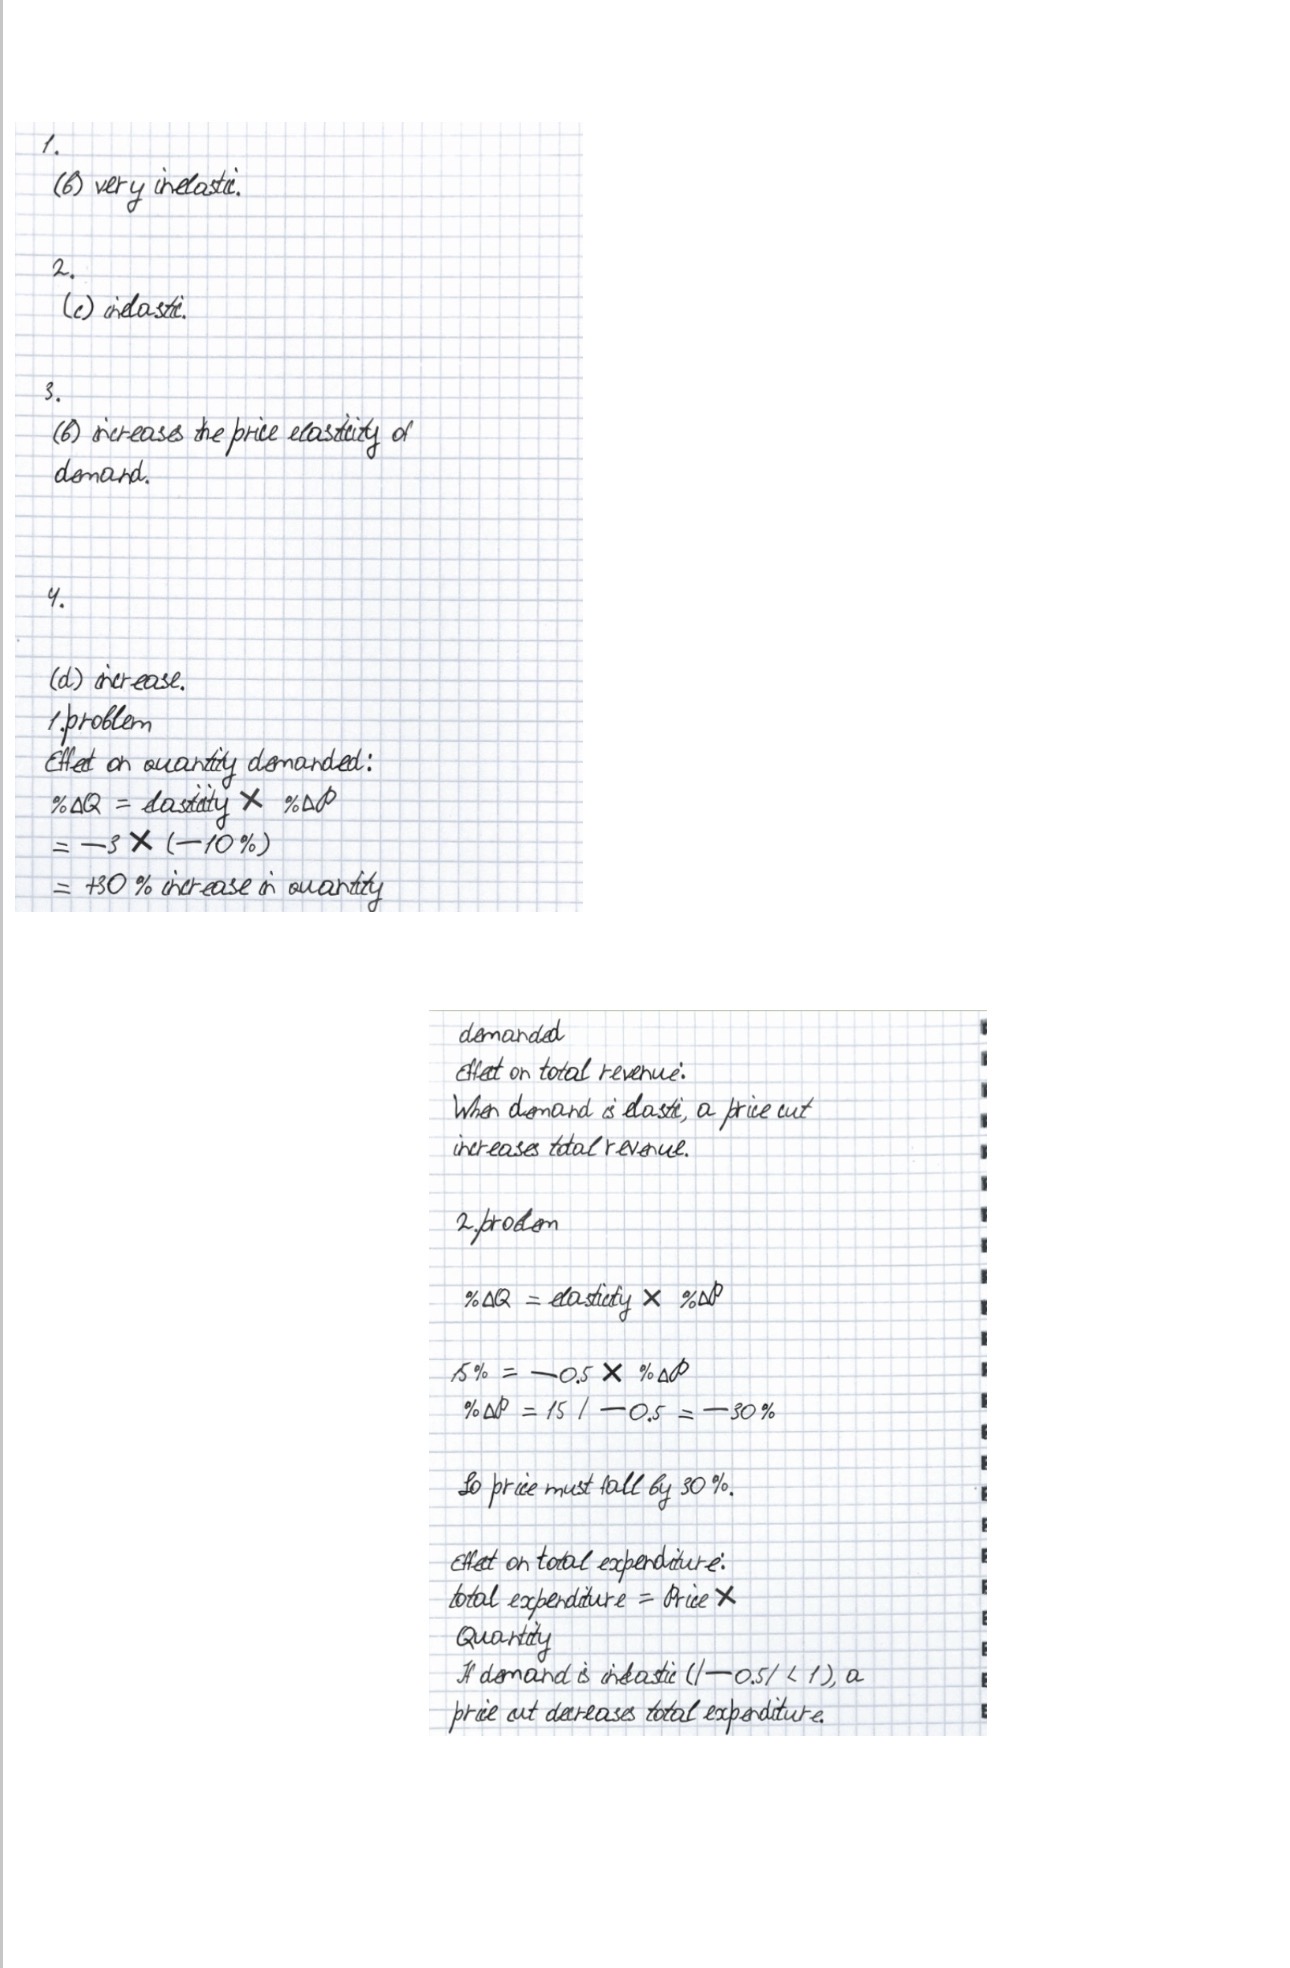 1.
(b) very inelastic.
2.
(c) inelastic.
3.
(b) increases the price elasticity of
demand.
4.
(d) increase.
1.problem
Effect on quantity demanded:
%ΔQ = elasticity × %ΔP
= -3 × (-10%)
= +30% increase in quantity
demanded
Effect on total revenue:
When demand is elastic, a price cut
increases total revenue.
2.problem
%ΔQ = elasticity × %ΔP
15% = -0.5 × %ΔP
%ΔP = 15 / -0.5 = -30%
So price must fall by 30%.
Effect on total expenditure:
total expenditure = Price ×
Quantity
If demand is inelastic (|-0.5| < 1), a
price cut decreases total expenditure.